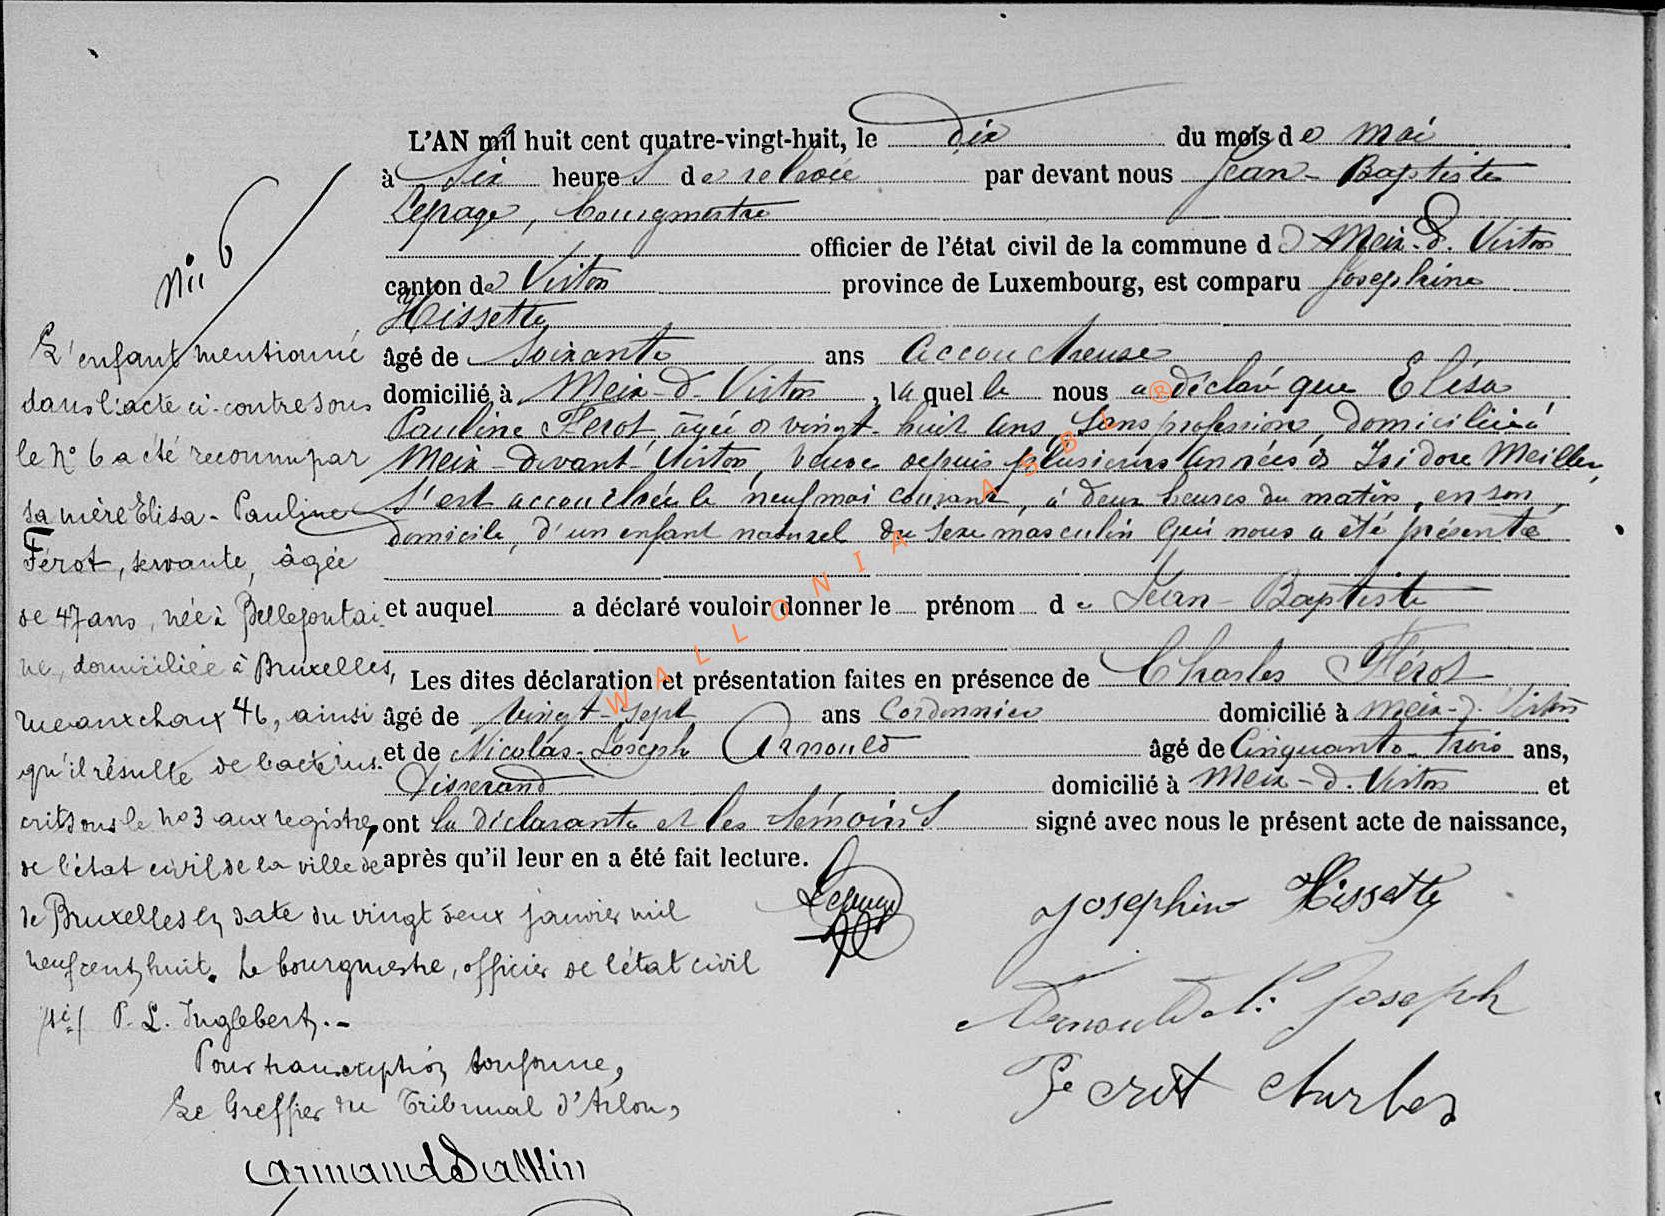 L'AN mil huit cent quatre-vingt-huit, le dix du mois de mai
à Six heures de relevée par devant nous Jean-Baptiste
Lepage, bourgmestre
officier de l'état civil de la commune de Meix-d. Virton
canton de Virton province de Luxembourg, est comparu Josephine
Hissette
âgé de Soixante ans accoucheuse
domicilié à Meix-d-Virton, laquelle nous a déclaré que Elisa
Pauline Férot âgée de vingt-huit ans, sans profession, domiciliée à
Meix-devant-Virton, veuve depuis plusieurs années de Isidore Meiller,
s'est accouchée le neuf mai courant, à deux heures du matin, en son
domicile, d'un enfant naturel du sexe masculin qui nous a été présenté
et auquel a déclaré vouloir donner le prénom de Jean-Baptiste
Les dites déclaration et présentation faites en présence de Charles Férot
âgé de vingt-sept ans Cordonnier domicilié à Meix-d. Virton
et de Nicolas-Joseph Arnould âgé de Cinquante-trois ans,
Tisserand domicilié à Meix-d. Virton et
ont la déclarante et les témoins signé avec nous le présent acte de naissance,
après qu'il leur en a été fait lecture.
Lepage
Josephine Hissette
Arnould N. Joseph
Ferot Charles
N° 6
L'enfant mentionné
dans l'acte ci-contre sous
le N° 6 a été reconnu par
sa mère Elisa-Pauline
Férot, servante, âgée
de 47 ans, née à Bellefontai-
ne, domiciliée à Bruxelles,
rue aux choux 46, ainsi
qu'il résulte de l'acte ins-
crit sous le n° 3 aux registres
de l'état civil de la ville de
de Bruxelles en date du vingt deux janvier mil
neuf cent huit. Le bourgmestre, officier de l'état civil
P. L. Inglebert.-
Pour transcription conforme,
Le Greffier du Tribunal d'Arlon,
Armand Salkin
WALLONIA ASBL ®